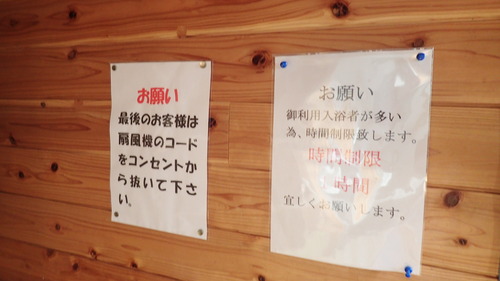 お願い
最後のお客様は
扇風機のコード
をコンセントか
ら抜いて下さ
い。
お願い
御利用入浴者が多い
為、時間制限致します。
時間制限
1時間
宜しくお願いします。